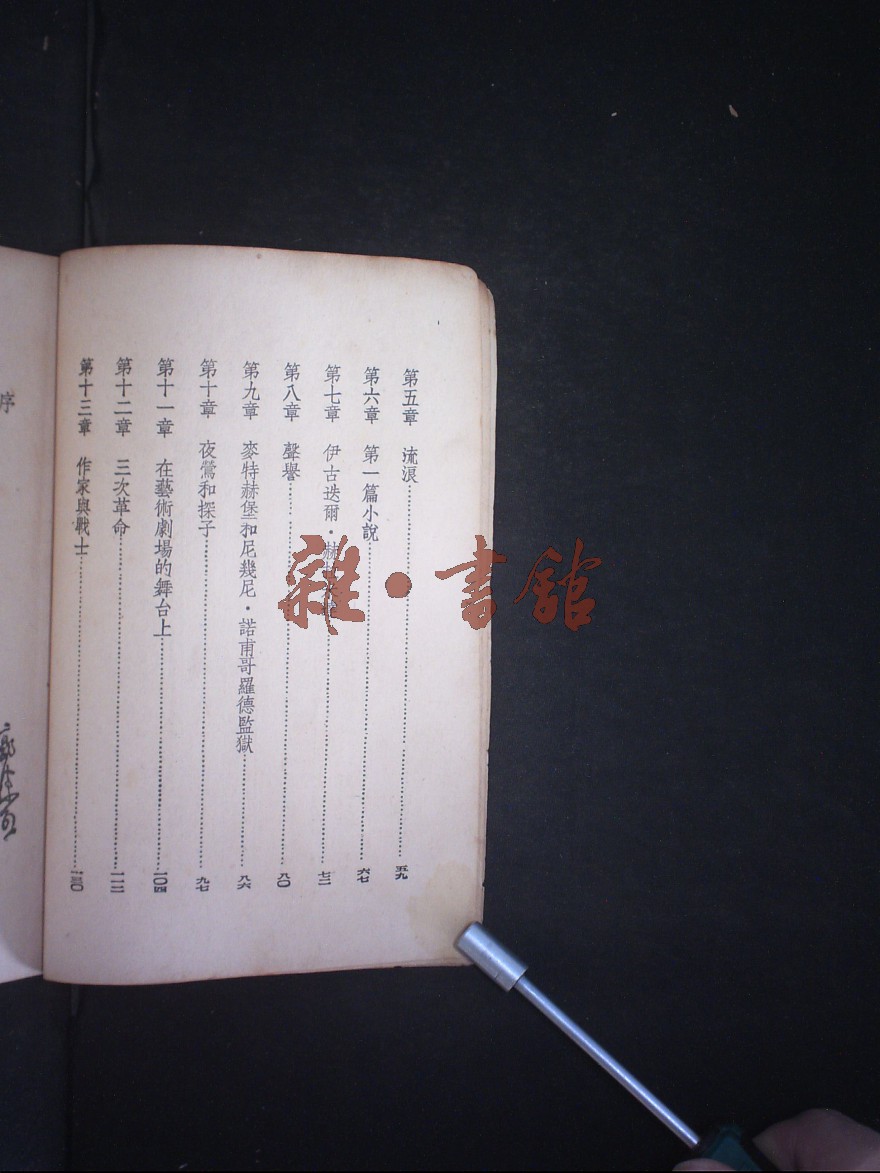 第五章 流浪……五九
第六章 第一篇小說……六七
第七章 伊古迭爾·赫……七二
第八章 聲譽……八〇
第九章 麥特赫堡和尼幾尼·諾甫哥羅德監獄……八六
第十章 夜鶯和探子……九七
第十一章 在藝術劇場的舞台上……一〇四
第十二章 三次革命……一一二
第十三章 作家與戰士……一三〇
序
雜·書館